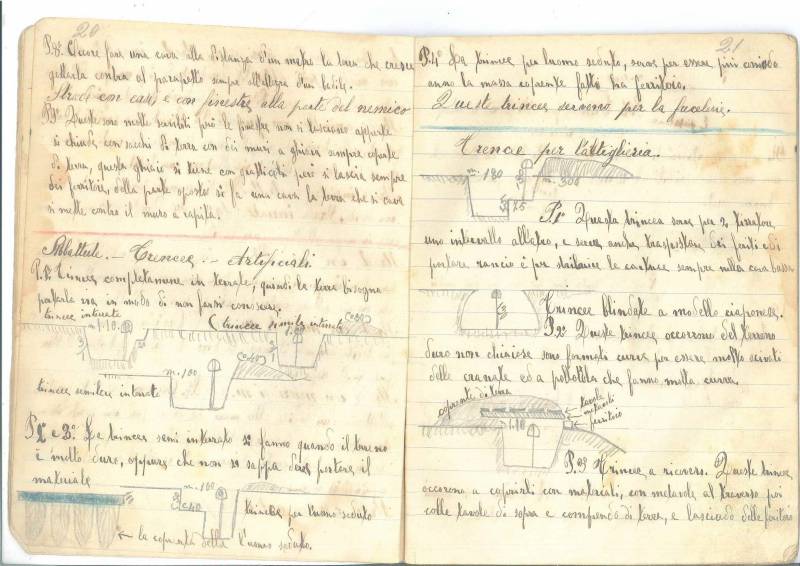 20
P. 8º. Occore fare una cava alla distanza d'un metro la terra che cresce
gettarla contra al parapetto sempre all'altezza d'un
Strade con case e con finestre alla parte del nemico
P. 9º. Queste sono molte servibili però le finestre non si lasciano apperte
si chiuda con sacchi di terra con dei muri a ghiaia sempre coperte
di terra, questa ghiaia si tiene con graticati però si lascia sempre
dei feritore, della parte oposta si fa una cava la terra che si cava
si mette contro il muro a rapita.
Abbattute. - Trincee. - Artificiali.
P. 1º. Trincea completamene in terrate, quando la terra bisogna
portarla via in modo di non farsi conoscere.
trincee interrate
(trincee simile interrate
m. 1.10
m. 180
trincee semilere interrate
P. 2º e 3º. Le trincee semi interrate si fanno quando il terreno
è molto duro, oppure che non si sappa dove portare il
materiale
m. 180
trincea per l'uomo seduto
← la coperata della l'uomo seduto.
21
P. 4º La trincea per l'uomo seduto, serve per essere più comodo
anno la massa coprente fatto ha ferritoio.
Queste trincee servono per la fucileria.
Trencee per l'attiglieria.
m. 180
m. 300
P. 1º Questa trincea serve per 2 tirratore
uno intervallo all'altro, e serve anche trasportare dei feriti e di
portare rancio e per sbilarice la cartucce sempre nella cava bassa
Trincee blindate a modello giaponese.
P. 2º Queste trincee occorrono del terreno
duro non chiaiese sono formati curva per essere molto scivati
delle granate ed a pallottola che fanno molta curva.
coprente di terra
tavole
metaroli
ferritoio
1.10
P. 3º Trincee a ricovero. Queste trincee
occorono a coprirli con materiali, con metavole al traverso poi
colle tavole di sopra e comprendo di terra, e lasciado delle feritoio